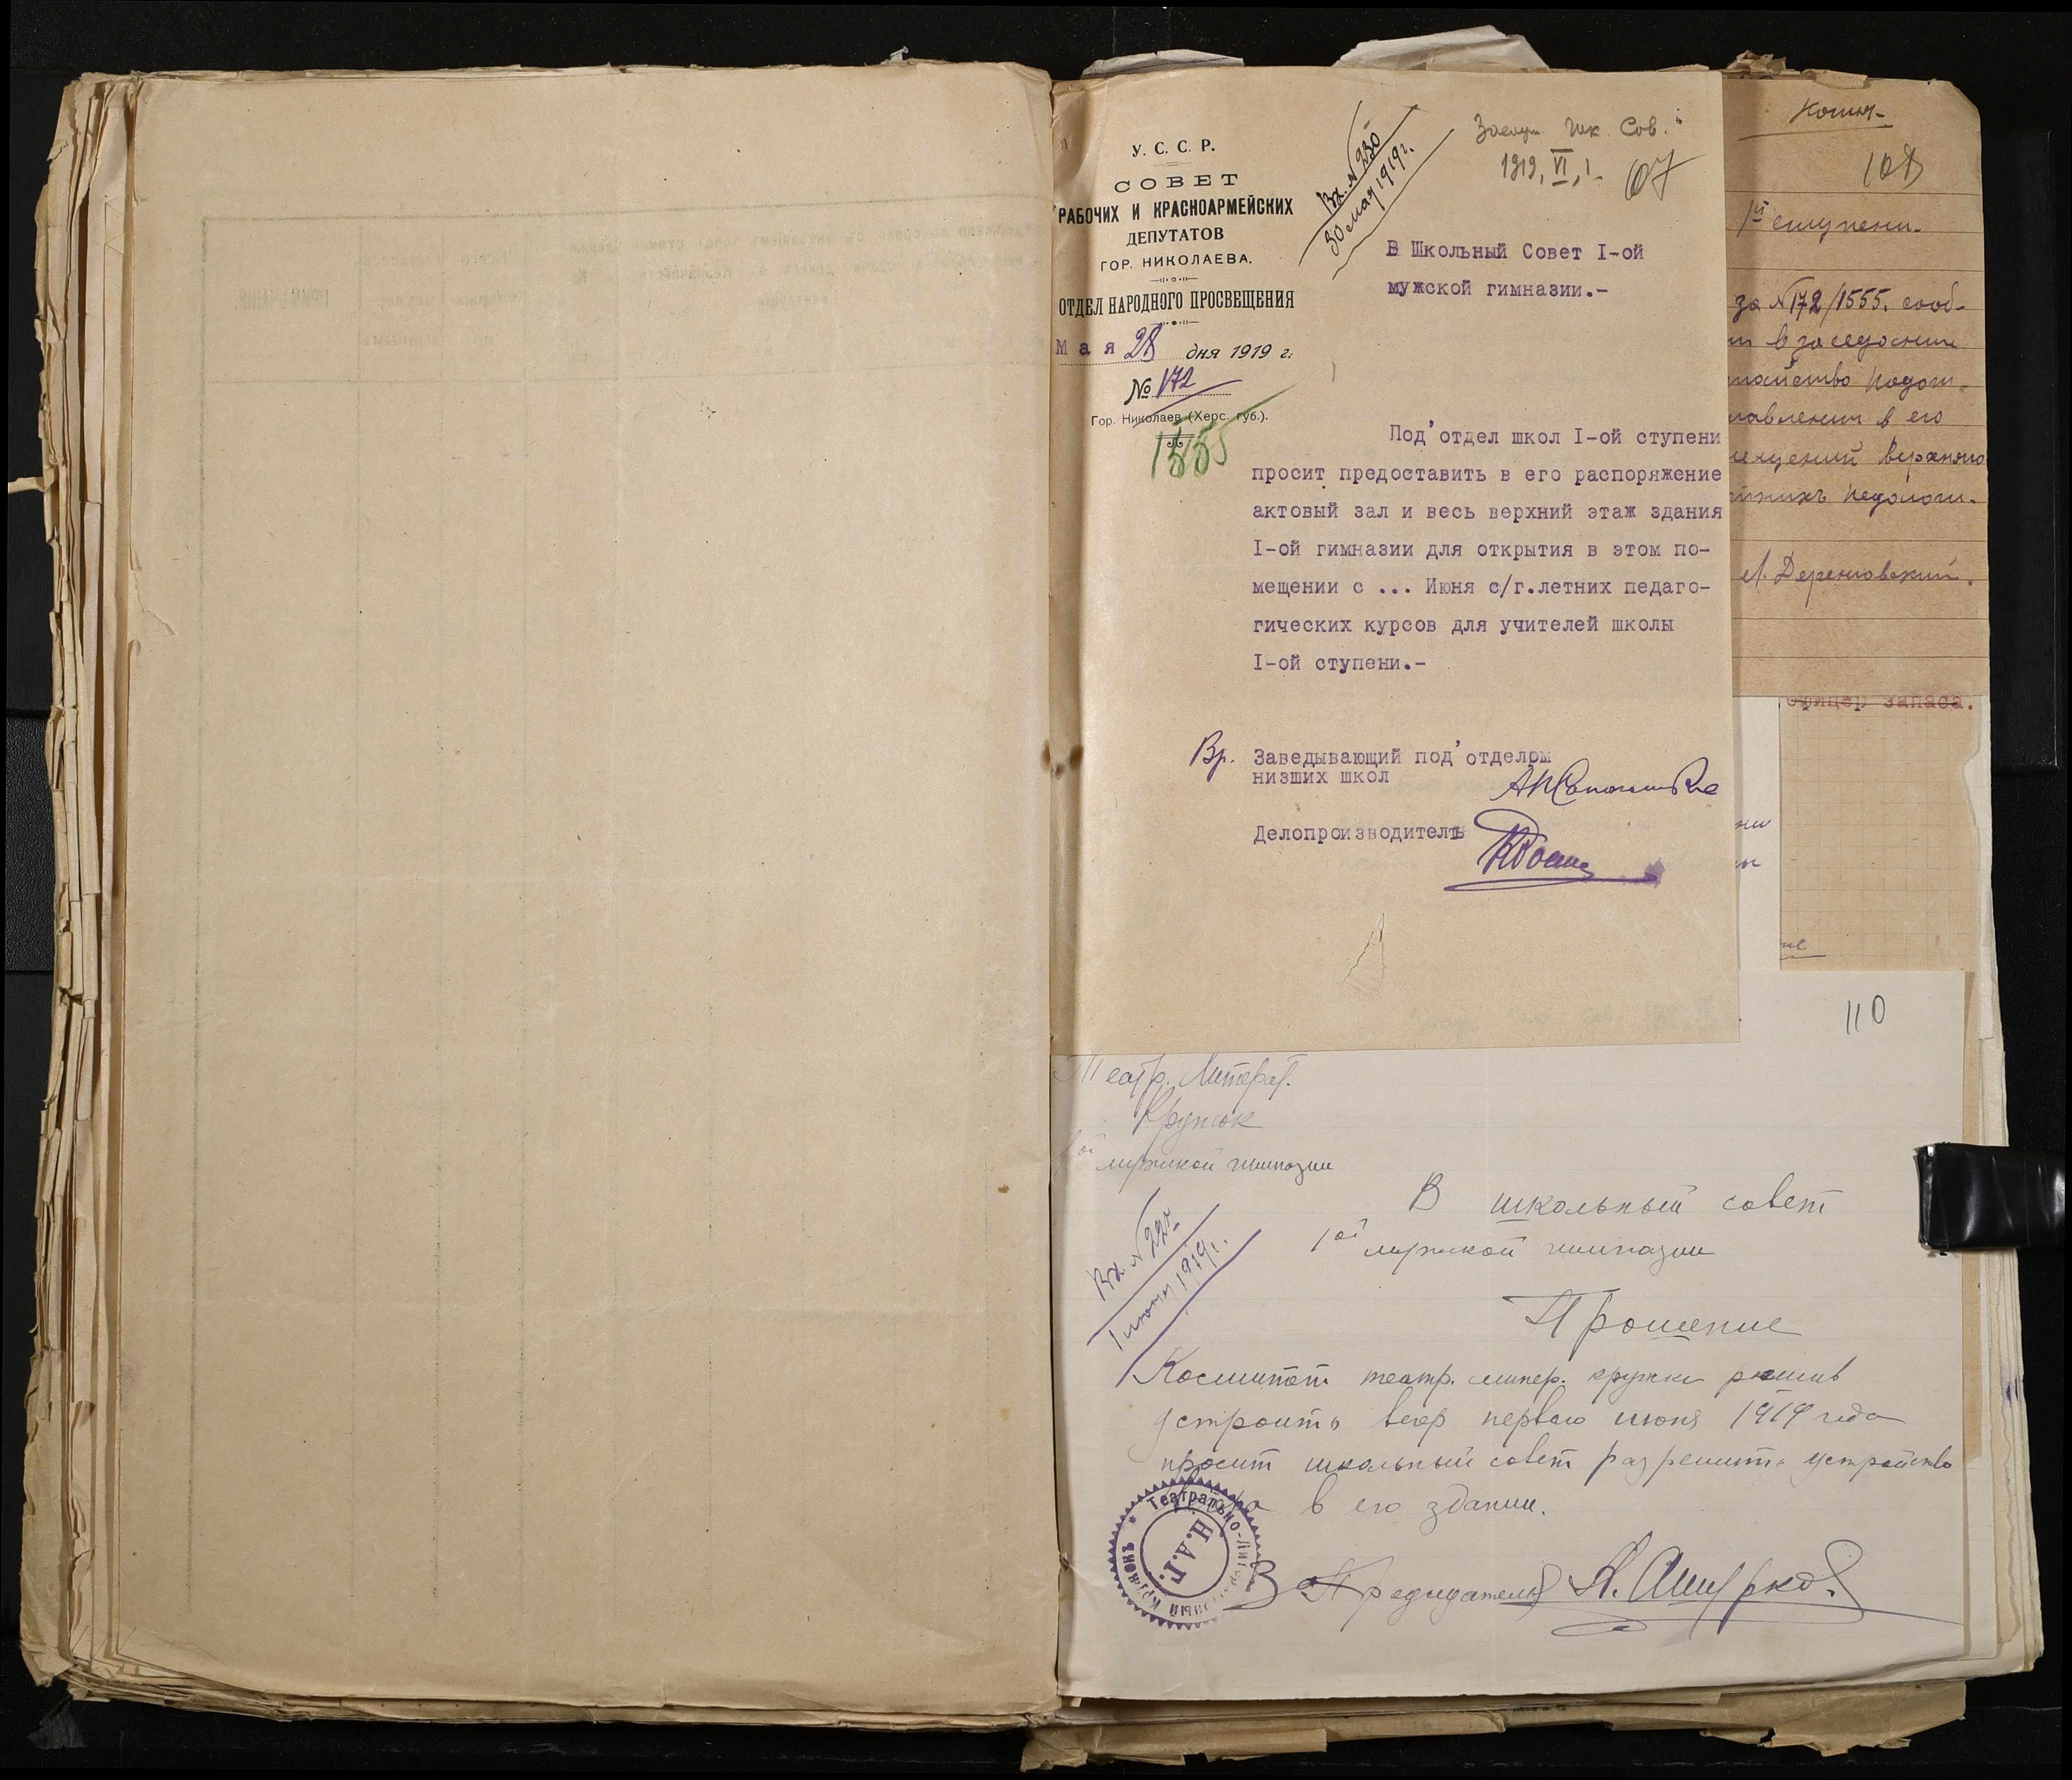 У. С. С. Р.
СОВЕТ
РАБОЧИХ И КРАСНОАРМЕЙСКИХ
ДЕПУТАТОВ
ГОР. НИКОЛАЕВА.
ОТДЕЛ НАРОДНОГО ПРОСВЕЩЕНИЯ
Мая 28 дня 1919 г.
№ 172
Гор. Николаев (Херс. губ.).
1555
Вх. N 230
30 мая 1919 г.
Шк. Сов.
1919, VI, 1.
107
В Школьный Совет I-ой
мужской гимназии.-
Под'отдел школ I-ой ступени
просит предоставить в его распоряжение
актовый зал и весь верхний этаж здания
I-ой гимназии для открытия в этом по-
мещении с ... Июня с/г.летних педаго-
гических курсов для учителей школы
I-ой ступени.-
Вр. Заведывающий под'отделом
низших школ
Делопроизводитель
Копия
108
1й ступени.
за N 172/1555. сооб-
в заседании
в его
верхняго
офицер запаса.
110
Театр. Литерат.
Кружок
1ой мужской гимназии
Вх. N 224
1 июня 1919 г.
В школьный совет
1ой мужской гимназии
Прошение
Комитет театр. литер. кружка решив
устроить вечер первого июня 1919 года
просит школьный совет разрешить устройство
в его здании.
Театрально-Литературный Кружокъ
Н.А.Г.
За Председателя